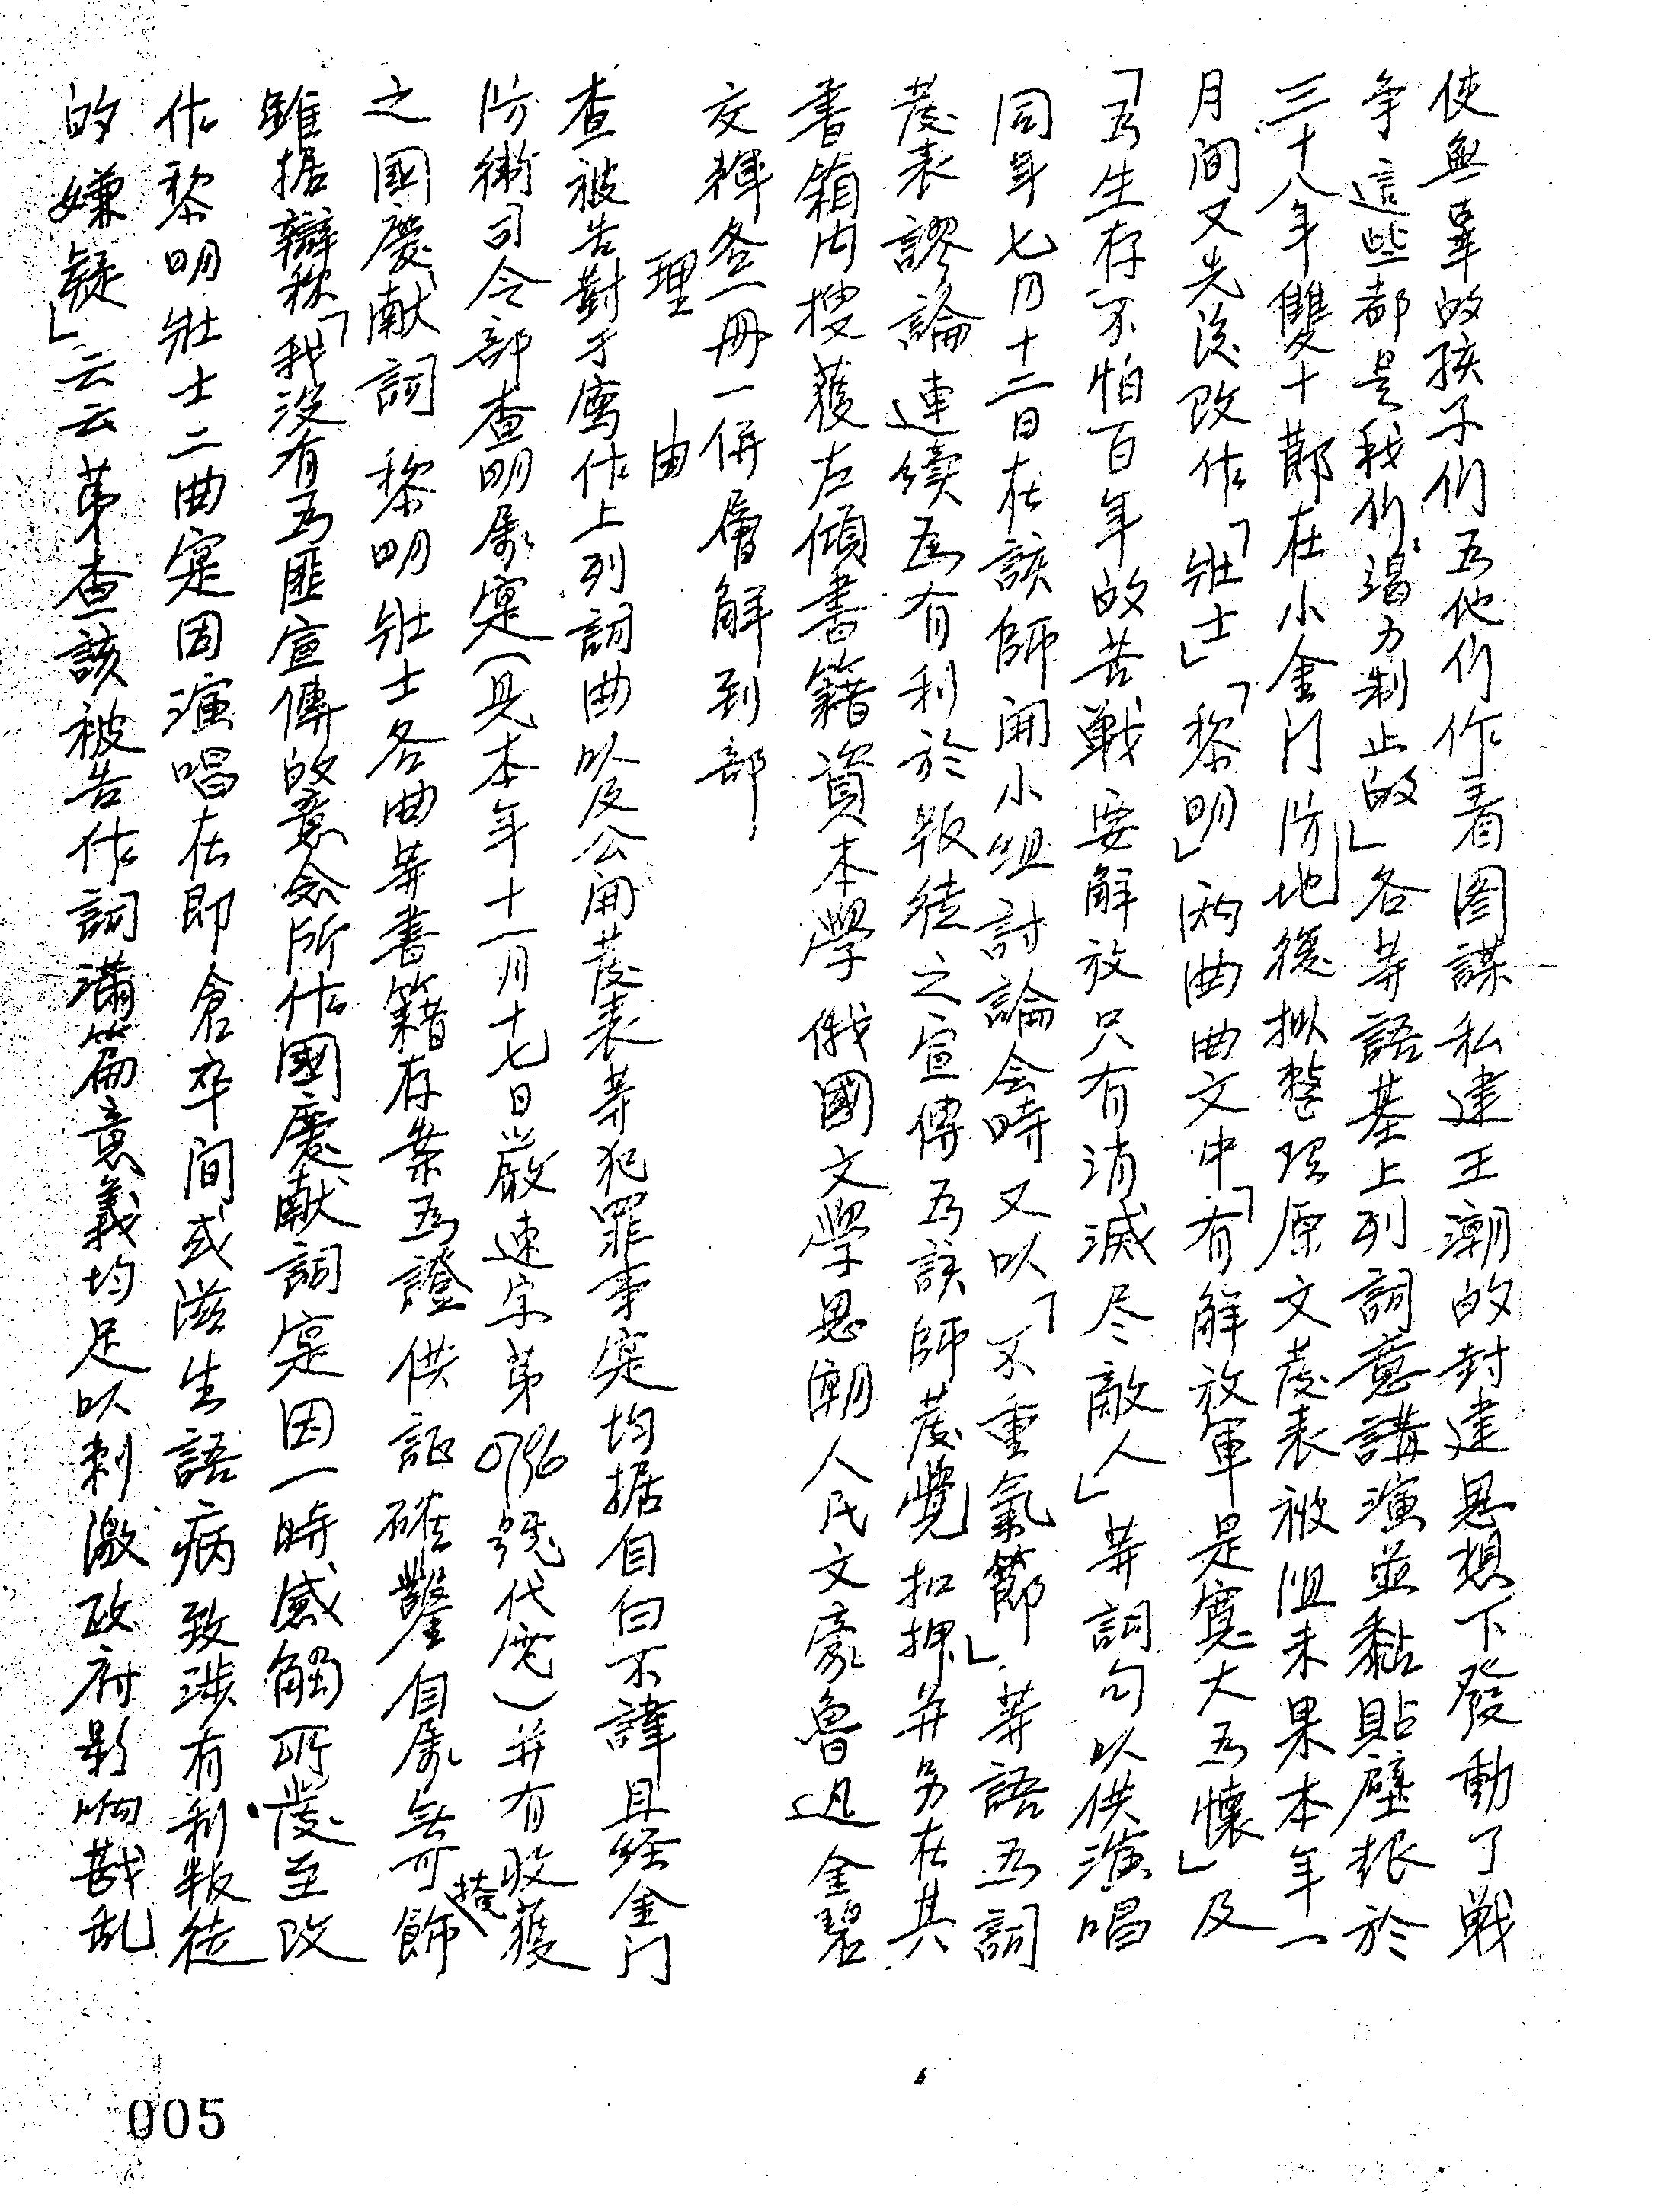 使無辜的孩子們為他們作着图謀私建王潮的封建思想下發動了戰
爭這些都是我們竭力制止的」各等語基上列詞意講演並黏貼壁報於
三十八年雙十節在小金门防地後拟整理原文發表被阻未果本年一
月間又先後改作「壯士」「黎明」兩曲曲文中「有解放軍是寬大為懷」及
「為生存不怕百年的苦戰要解放只有消滅尽敵人」等詞句以供演唱
同年七月十二日在該師開小組討論会時又以「不重氣節」等語為詞
發表謬論連續為有利於叛徒之宣傳為該師發覺扣押并另在其
書箱内搜獲左傾書籍資本學俄國文學思潮人民文豪魯迅金碧
交輝各一冊一併層解到部
理由
查被告對于寫作上列詞曲以及公開發表等犯罪事寔均据自白不諱且経金门
防衛司令部查明属寔(見本年十一月十七日嚴速字第0796號代电)并有收獲
之國慶献詞黎明壯士各曲等書籍存案為證供証確鑿自属無可掩飾
雖据辯称「我沒有為匪宣傳的意念所作國慶献詞寔因一時感觸所發至改
作黎明壯士二曲寔因演唱在即倉卒間或滋生語病致涉有利叛徒
的嫌疑」云云第查該被告作詞滿篇意義均足以刺激政府影响戡乱
005